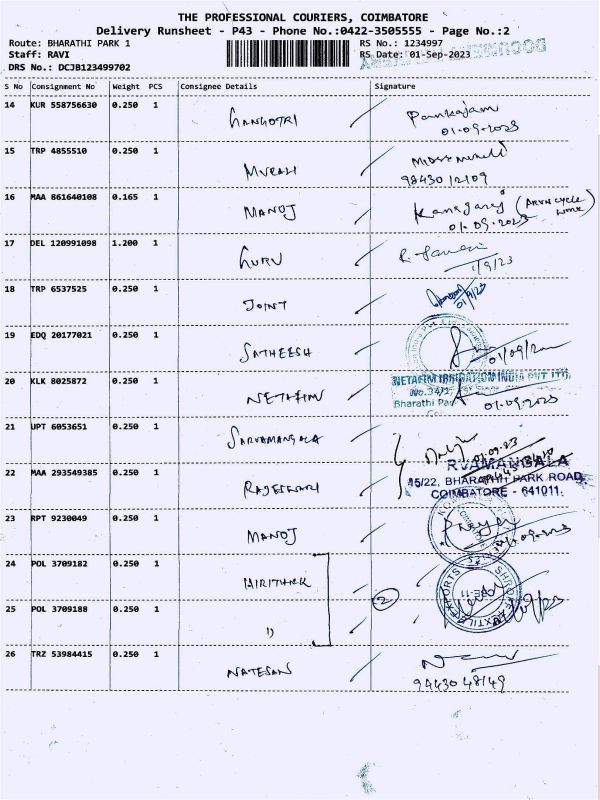 THE PROFESSIONAL COURIERS, COIMBATORE
Delivery Runsheet - P43 - Phone No.:0422-3505555 - Page No.:2
Route: BHARATHI PARK 1 RS No.: 1234997
Staff: RAVI RS Date: 01-Sep-2023
DRS No.: DCJB123499702
S No Consignment No Weight PCS Consignee Details Signature
14 KUR 558756630 0.250 1
GANGOTRI Pankajam
01-09-2023
15 TRP 4855510 0.250 1
MURALI
98430 12109
16 MAA 861640108 0.165 1
MANOJ Kanagaraj
01.09.2023
17 DEL 120991098 1.200 1
GURU
1/9/23
18 TRP 6537525 0.250 1
JOINT 01/9/23
19 EDQ 20177021 0.250 1
SATHEESH 01/09/
20 KLK 8025872 0.250 1 NETAFIM IRRIGATION INDIA PVT LTD.
NETAFIM Bharathi
01.09.2023
21 UPT 6053651 0.250 1
SARVAMANGALA 01.09.23
RVAMANGALA
22 MAA 293549385 0.250 1 45/22, BHARATHI PARK ROAD
RAJESWARI COIMBATORE - 641011.
23 RPT 9230049 0.250 1
MANOJ
24 POL 3709182 0.250 1
2
25 POL 3709188 0.250 1
11
26 TRZ 53984415 0.250 1
NATESAN
94430 48149